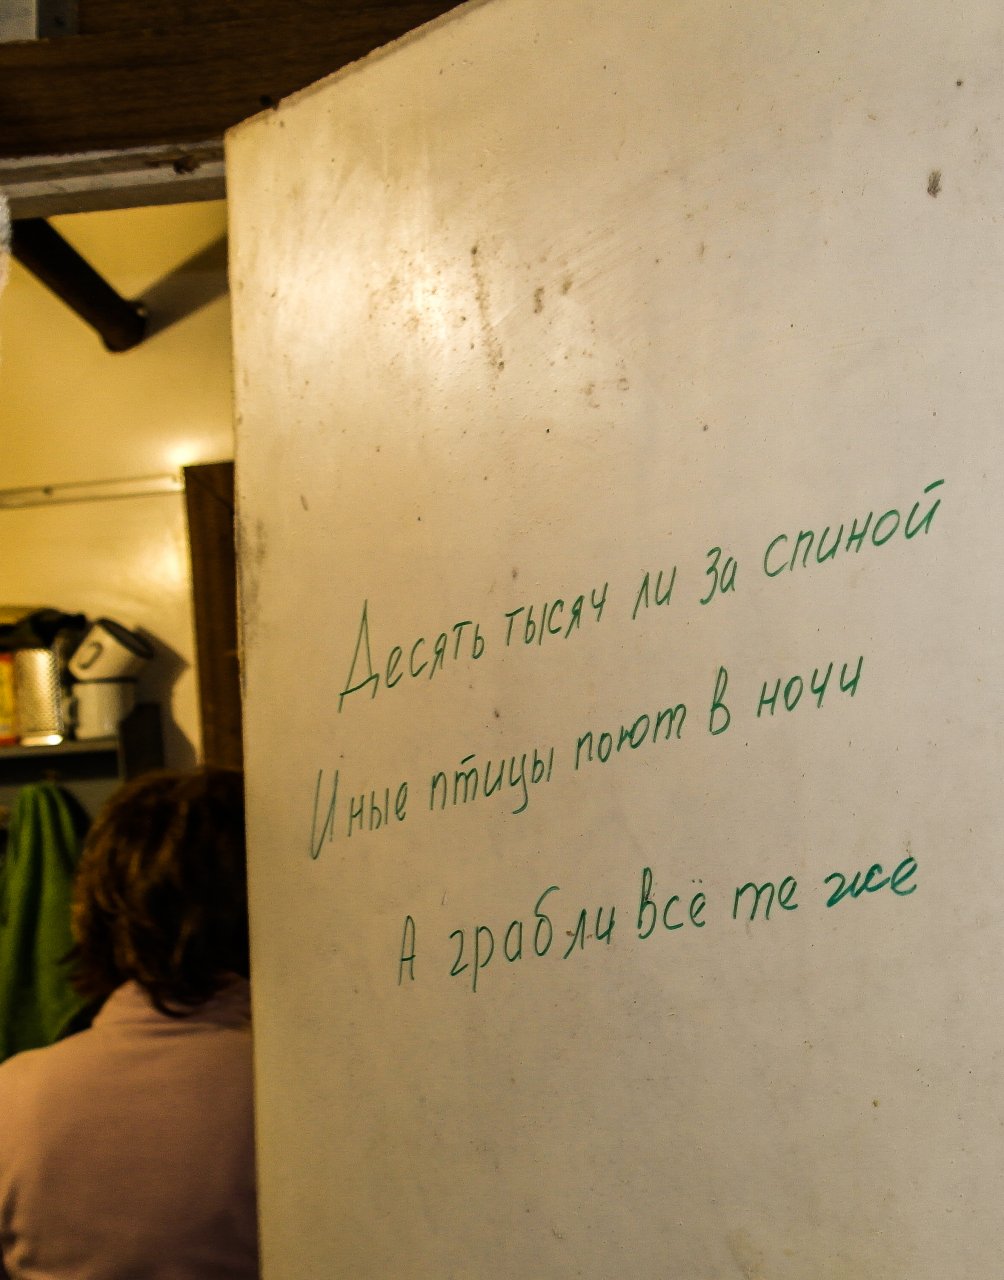 Десять тысяч ли за спиной
Иные птицы поют в ночи
А грабли всё те же